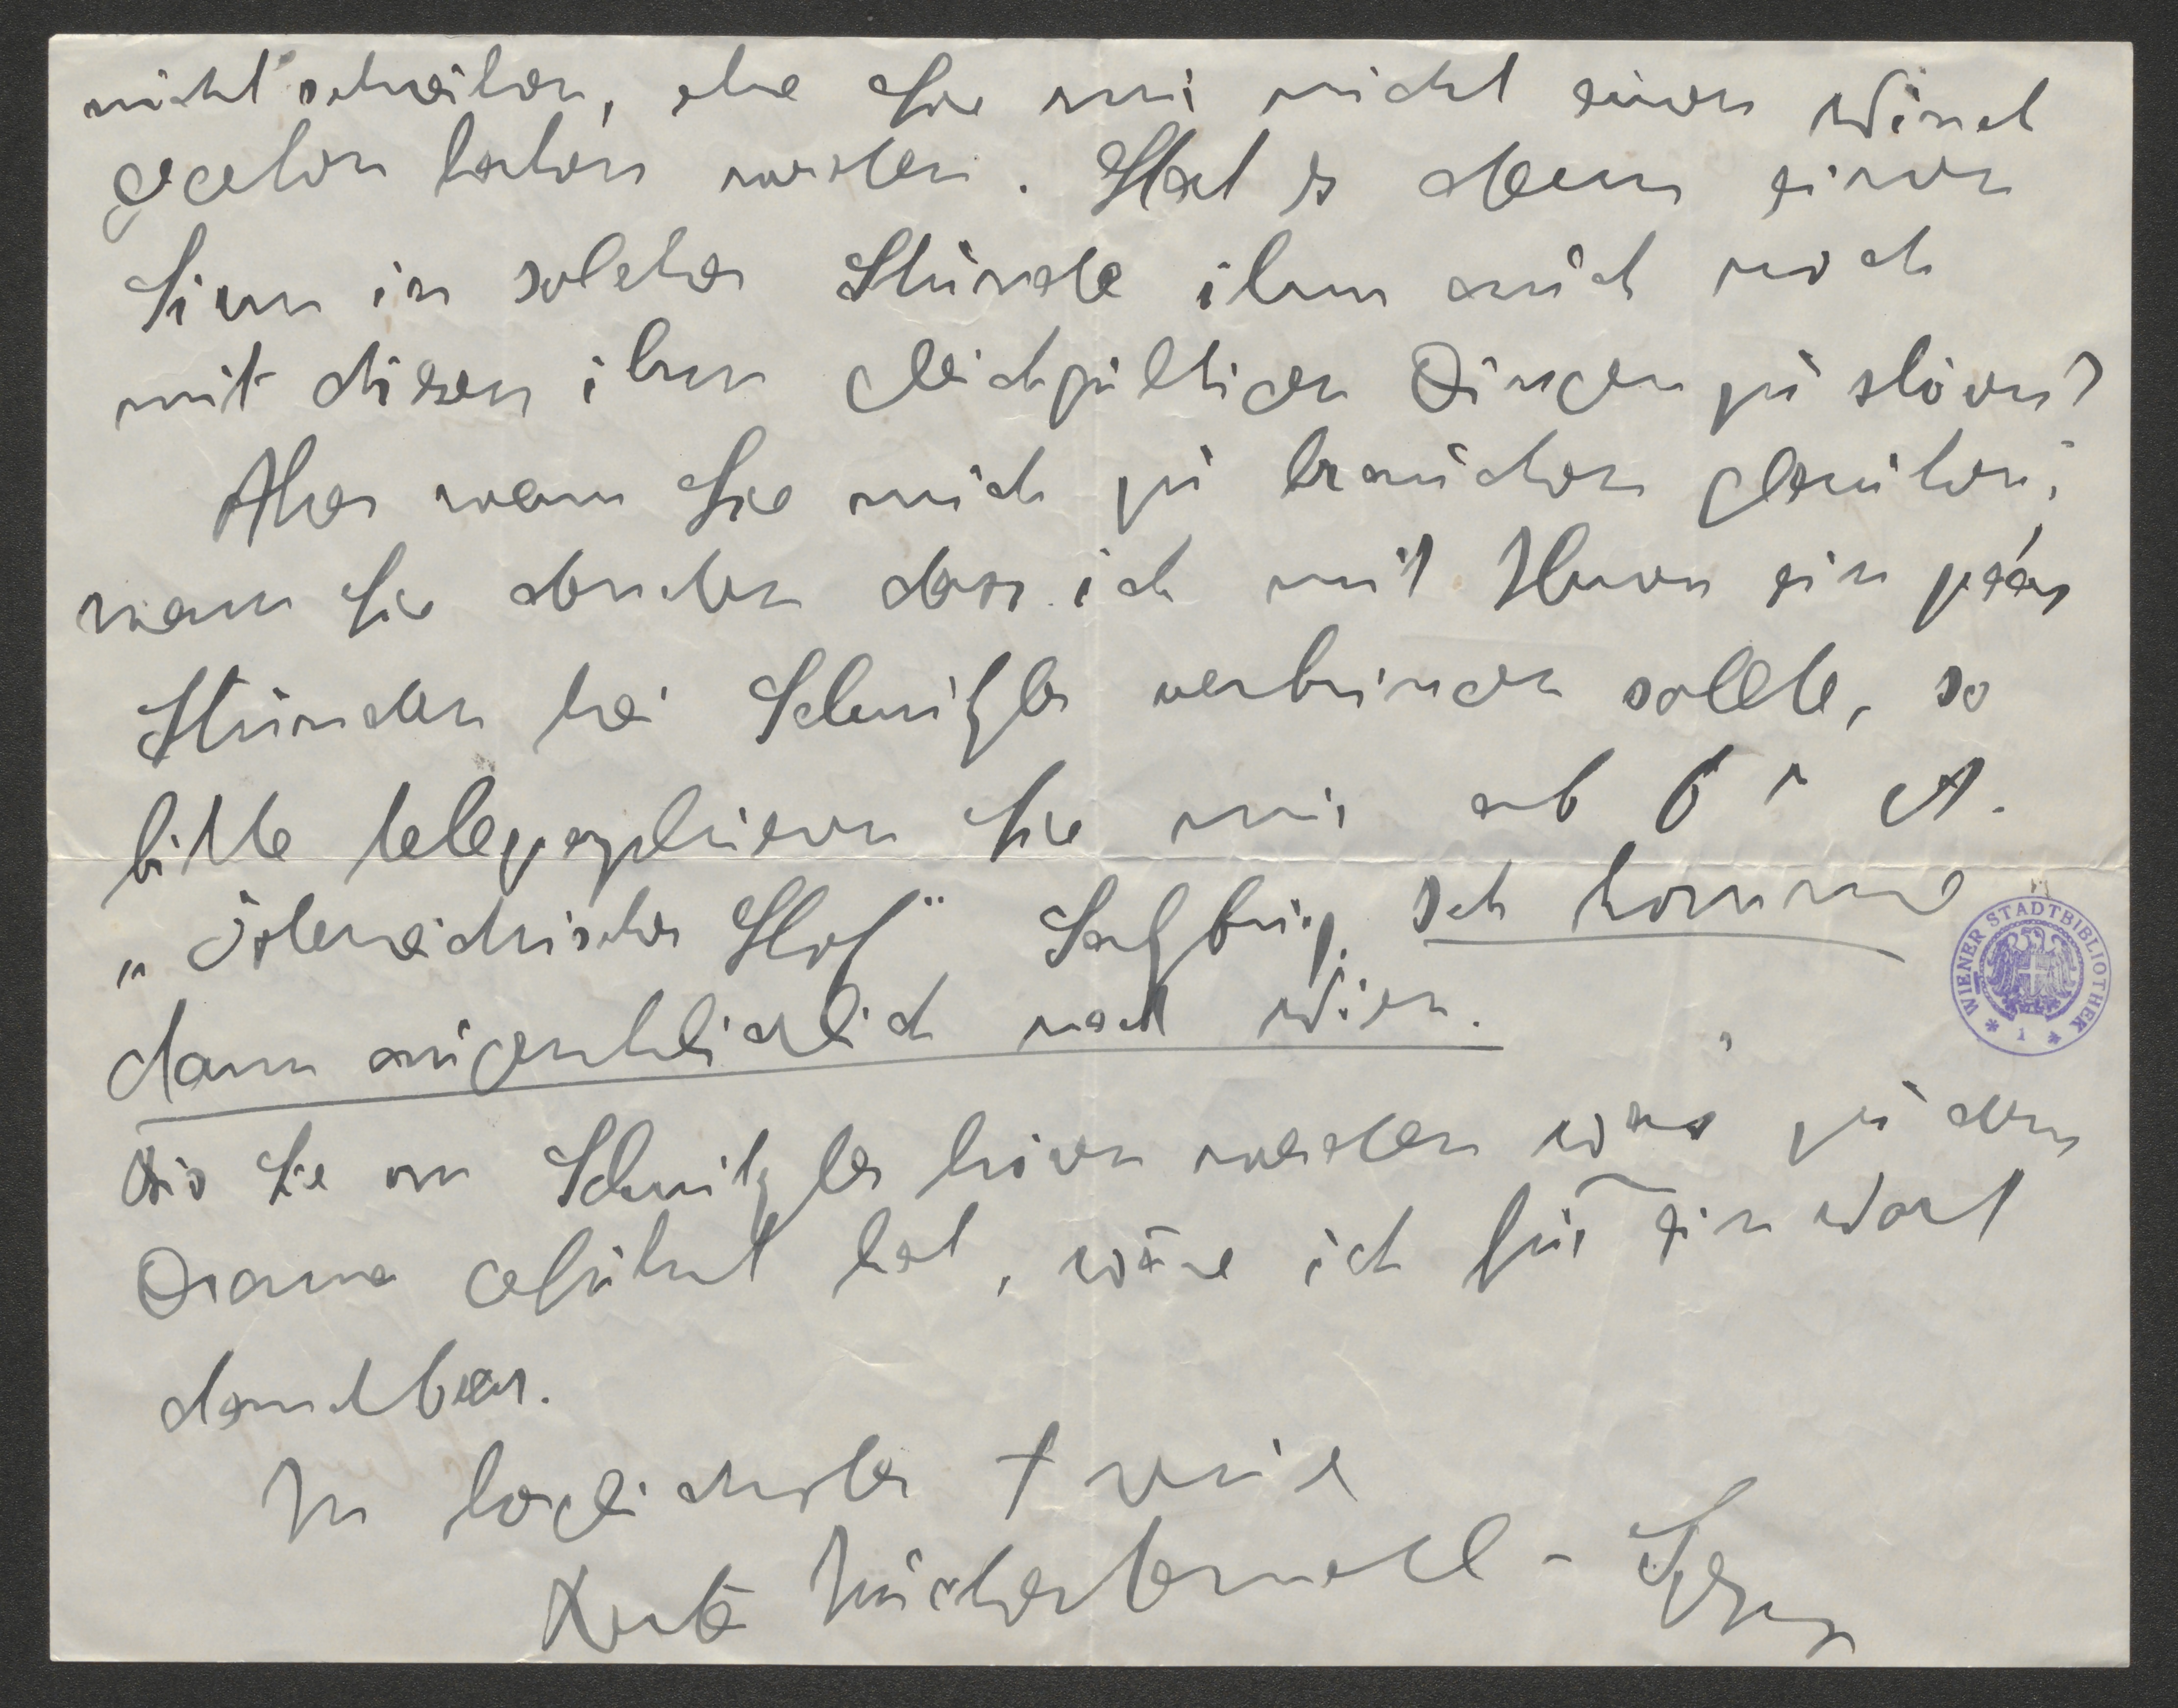 nicht schreiben, ehe Sie mir nicht einen Wink
gegeben haben werden. Hat es denn einen
Sinn in solcher Stunde ihm auch noch
mit diesen ihm gleichgültigen Dingen zu stören?
Aber wenn Sie mich zu brauchen glauben,
wenn Sie denken dass ich mit Ihnen ein paar
Stunden bei Schnitzler verbringen sollte, so
bitte telegraphieren Sie mir ab 6
„Österreichischer Hof" Salzburg. Ich komme
dann augenblicklich nach Wien.
Bis Sie von Schnitzler hören werden was zu dem
Drama geführt hat, wäre ich für ein Wort
dankbar.
In herzlichster Treue
Zuckerkandl - Szeps
WIENER STADTBIBLIOTHEK
* 1 *